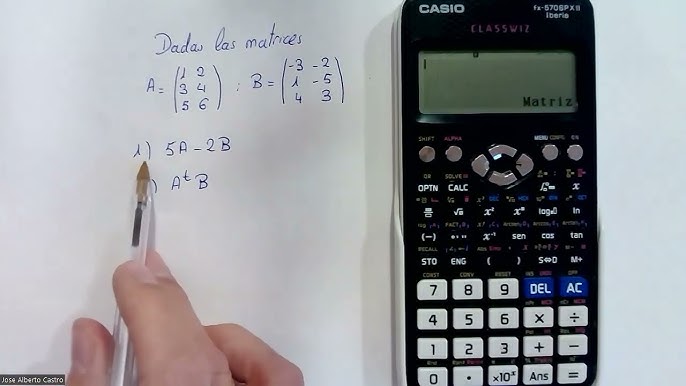 Dadas las matrices
A = (1 2 3 4 5 6) ; B = (-3 -2 1 -5 4 3)
1) 5A - 2B
) AᵗB
CASIO
fx-570SPX II
Iberia
CLASSWIZ
Matriz
SHIFT ALPHA MENU CONFIG ON
SOLVE
OPTN CALC x
√ x² log□ ln
(-) x⁻¹ sen cos tan
RECALL
STO ENG ( ) S⇔D M+
CONST CONV RESET INS OFF
7 8 9 DEL AC
4 5 6 × ÷
1 2 3 + -
0 . ×10ˣ Ans =
Jose Alberto Castro